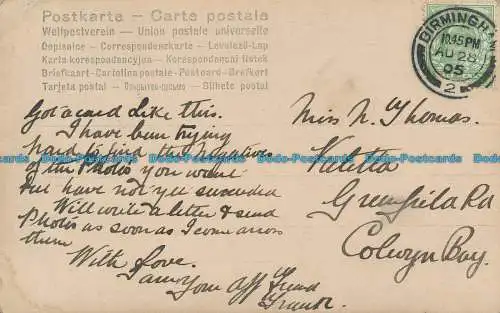 Postkarte - Carte postale
Weltpostverein - Union postale universelle
Dopisnice - Correspondenzkarte - Levelező-Lap
Karta korespondencyjna - Korespondenční lístek
Briefkaart - Cartolina postale - Postcard - Brefkort
Tarjeta postal - - Bilhete postal
BIRMINGH
10.45 PM
AU 28
05
2
Got a card like this.
I have been trying
hard to find the negatives
of the Photos you want
but have not yet succeeded
Will write a letter & send
Photos as soon as I come across
them
With Love.
I am your aff friend
Frank.
Miss N. Thomas.
Valetta
Greenfield Rd
Colwyn Bay.
Dodo-Postcards Dodo-Postcards Dodo-Postcards Dodo-Postcards Dodo-Postcards